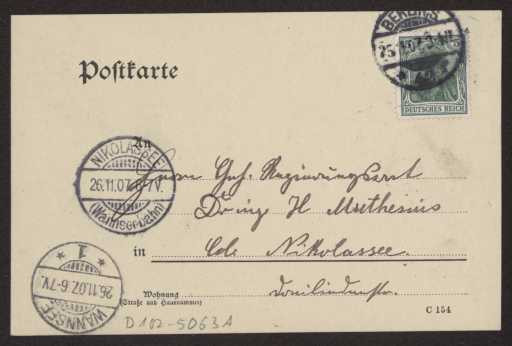 BERLIN S
25.11.07.3-4N
DEUTSCHES REICH
Postkarte
An
NIKOLASSEE
26.11.07.6-7V.
(Wannseebahn)
Herrn Geh. Regierungsrat
Dr. ing H Muthesius
in
Nikolassee
1
26.11.07.6-7V.
WANNSEE
Wohnung
(Straße und Hausnummer)
C 154
D 102-5063A